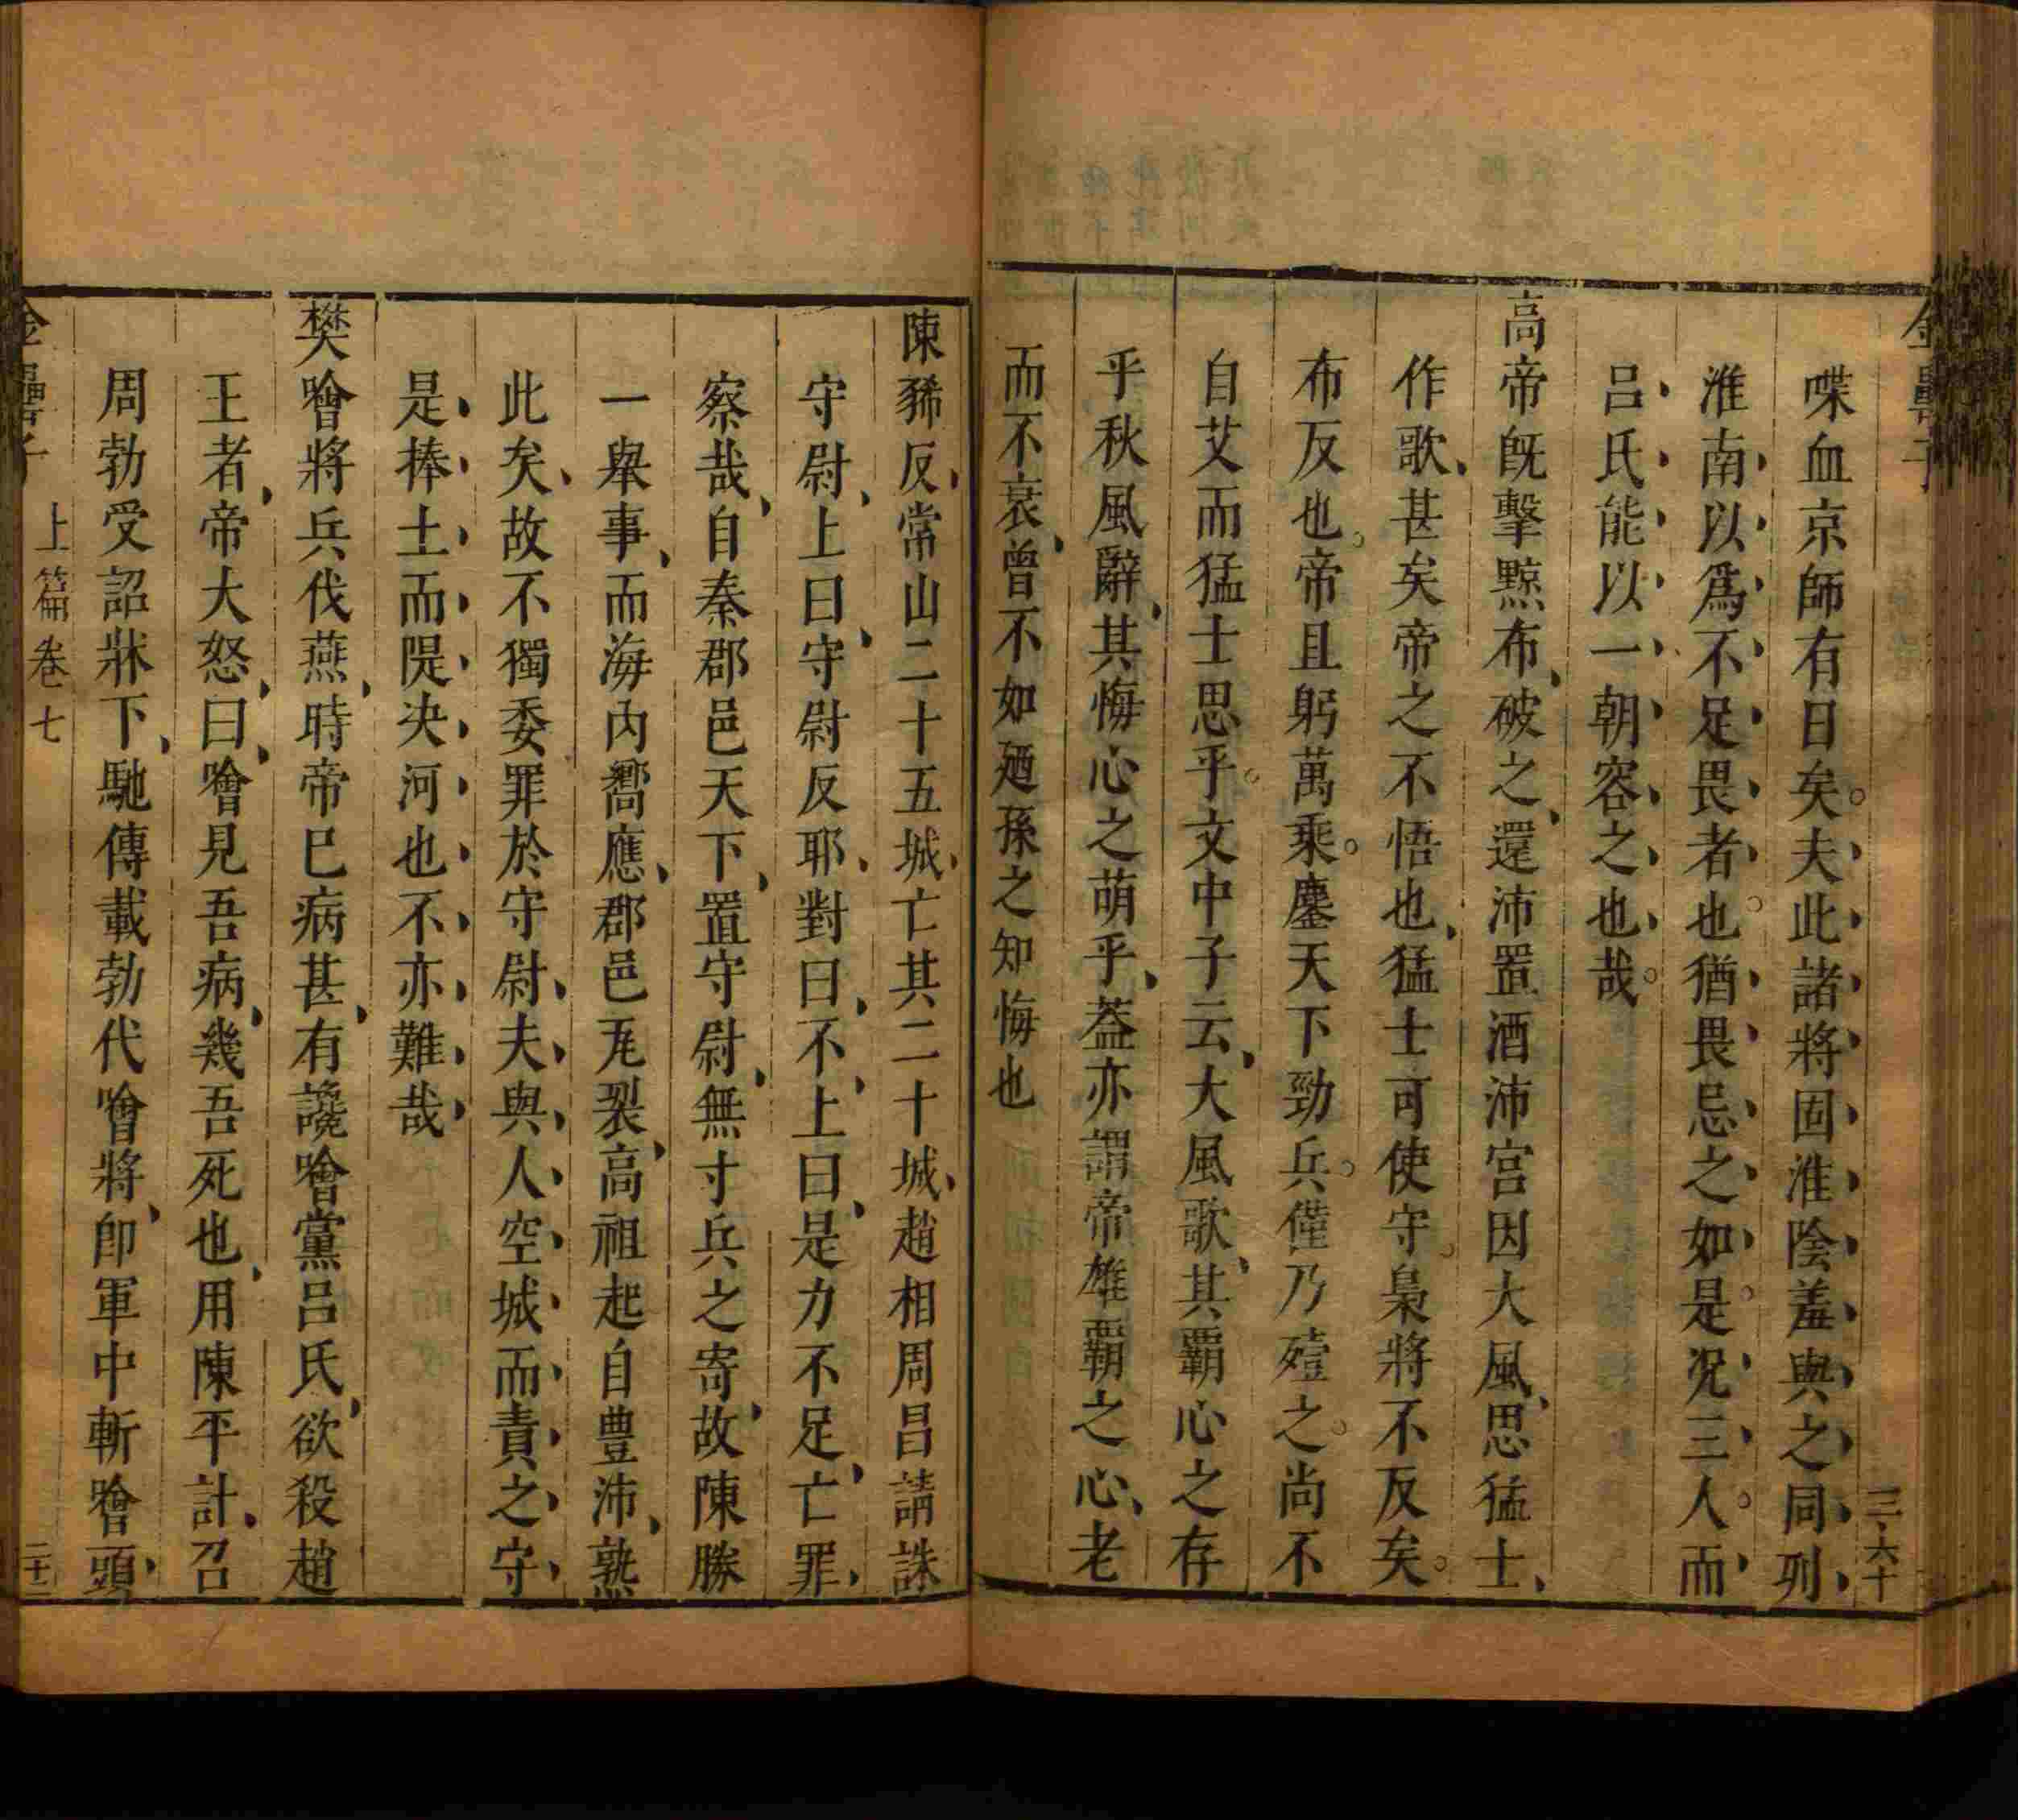 喋血京師有日矣。夫此諸將固淮陰羞與之同列、
淮南以爲不足畏者也。猶畏忌之如是。况三人。而
吕氏能以一朝容之也哉。
高帝旣擊黥布、破之、還沛置酒沛宫因大風、思猛士、
作歌、甚矣帝之不悟也、猛士可使守。梟將不反矣。
布反也。帝且躬萬乘。鏖天下勁兵。僅乃殪之。尚不
自艾而猛士思乎。文中子云、大風歌、其霸心之存
乎秋風辭、其悔心之萌乎、葢亦謂帝雄覇之心、老
而不衰、曾不如廼孫之知悔也
陳豨反、常山二十五城、亡其二十城、趙相周昌請誅
守尉、上曰、守尉反耶、對曰、不、上曰、是力不足、亡罪、
察哉、自秦郡邑天下、置守尉、無寸兵之寄、故陳勝
一舉事、而海內嚮應、郡邑瓦裂、高祖起自豊沛、熟
此矣、故不獨委罪於守尉、夫與人空城而責之守、
是捧土而隄决河也、不亦難哉、
樊噲將兵伐燕、時帝巳病甚、有讒噲黨吕氏、欲殺趙
王者、帝大怒、曰、噲見吾病、幾吾死也、用陳平計、召
周勃受詔牀下、馳傳載勃代噲將、卽軍中斬噲頭、
上篇卷七